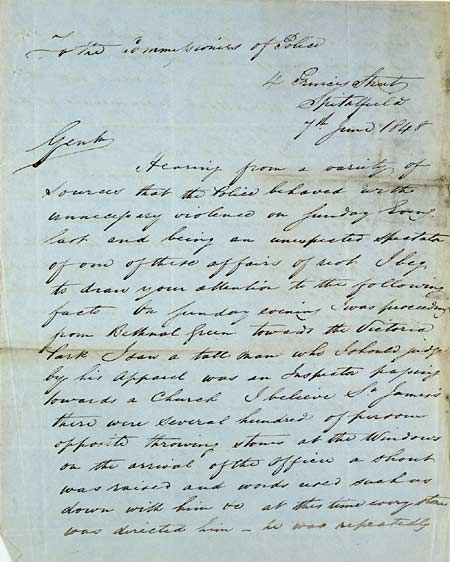 To the Commissioners of Police
4 Princes Street
Spitalfields
7th June 1848
Gentn
Hearing from a variety of
sources that the Police behaved with
unnecessary violence on Sunday Eveng
last and being an unexpected spectator
of one of these affairs of riot I beg
to draw your attention to the following
facts On Sunday evening I was proceeding
from Bethnal Green towards the Victoria
Park I saw a tall man who I should judge
by his apparel was an Inspector passing
towards a Church I believe St James's
there were several hundreds of persons
opposite throwing stones at the Windows
on the arrival of the officer a shout
was raised and words used such as
down with him &c at this time every stone
was directed him – he was repeatedly